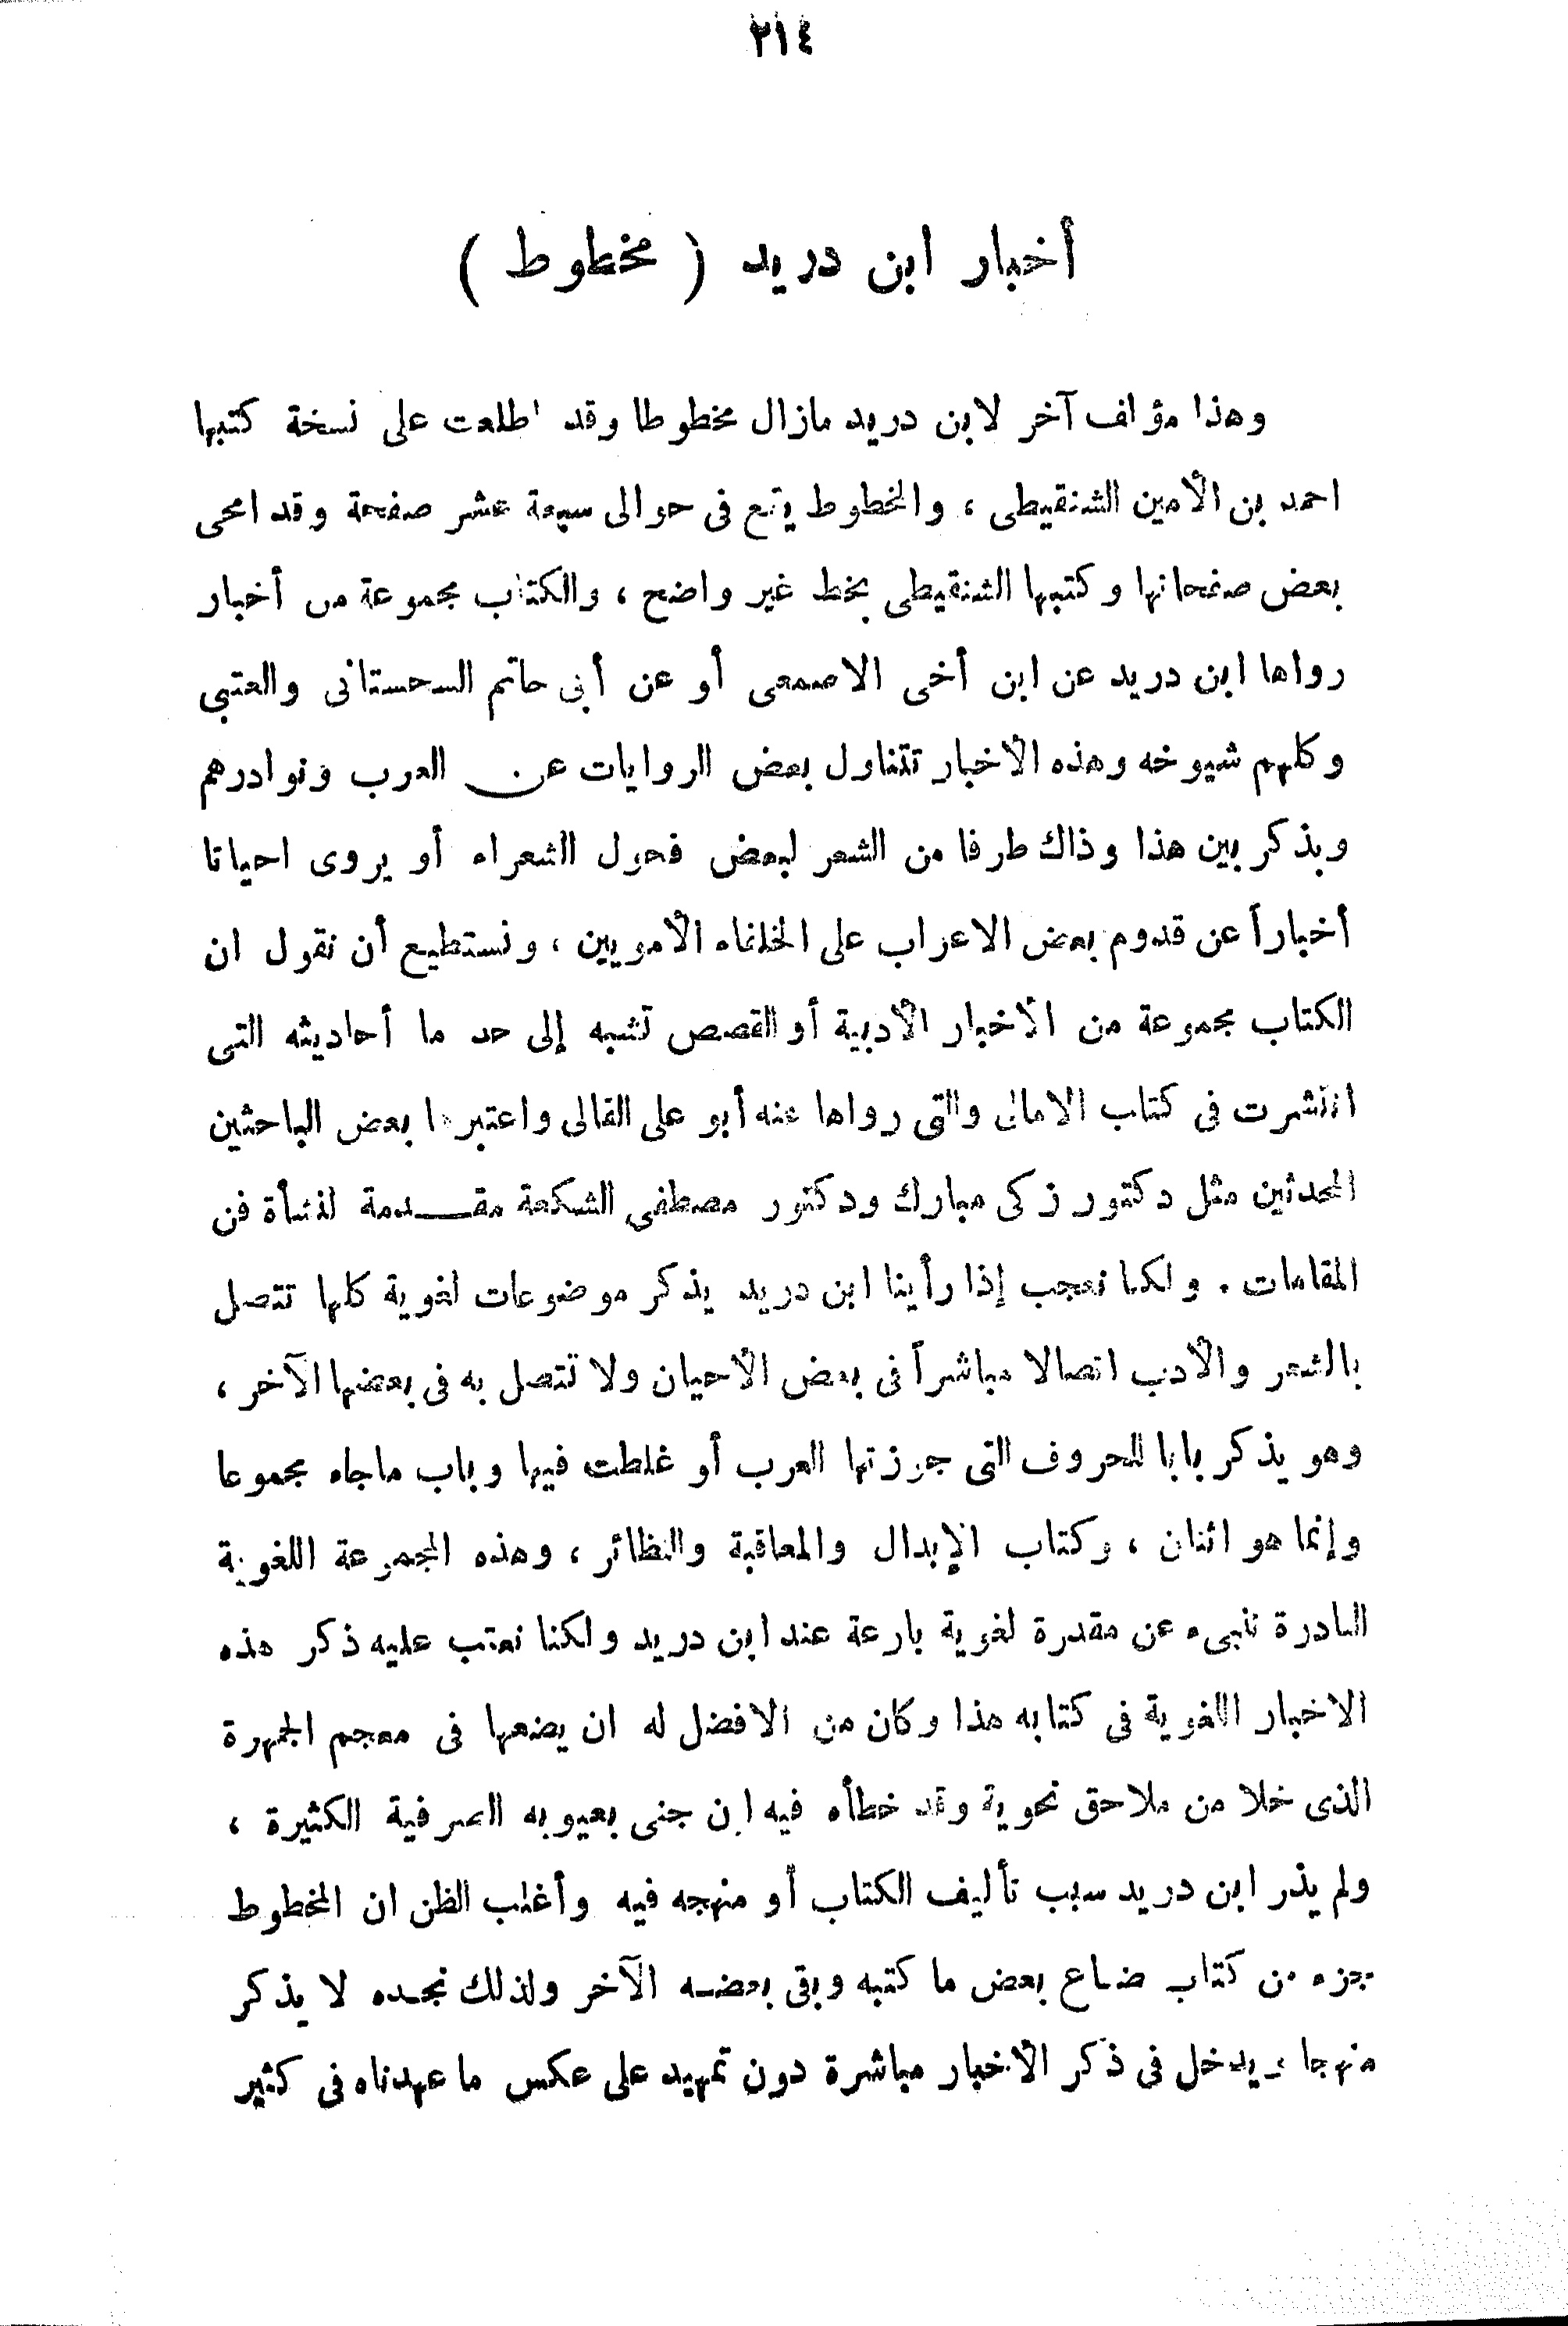 ٢١٤
أخبار ابن دريد ( مخطوط )
وهذا مؤلف آخر لابن دريد مازال مخطوطا وقد اطلعت على نسخة كتبها
احمد بن الأمين الشنقيطى ، والمخطوط يقع فى حوالى سبعة عشر صفحة وقد امحى
بعض صفحاتها وكتبها الشنقيطى بخط غير واضح ، والكتاب مجموعة من أخبار
رواها ابن دريد عن ابن أخى الاصمعى أو عن أبى حاتم السحستانى والعتبى
وكلهم شيوخه وهذه الأخبار تتناول بعض الروايات عن العرب ونوادرهم
ويذكر بين هذا وذاك طرفا من الشعر لبعض فحول الشعراء أو يروى احيانا
أخباراً عن قدوم بعض الاعراب على الخلفاء الأمويين ، ونستطيع أن نقول ان
الكتاب مجموعة من الأخبار الأدبية أو القصص تشبه إلى حد ما أحاديثه التى
انتشرت فى كتاب الامالى والتى رواها عنه أبو على القالى واعتبرها بعض الباحثين
المحدثين مثل دكتور زكى مبارك ودكتور مصطفى الشكعة مقدمة لنشأة فن
المقامات . ولكنا نعجب إذا رأينا ابن دريد يذكر موضوعات لغوية كلها تتصل
بالشعر والأدب اتصالا مباشراً فى بعض الأحيان ولا تتصل به فى بعضها الآخر ،
وهو يذكر بابا للحروف التى جوزتها العرب أو غلطت فيها وباب ماجاء مجموعا
وإنما هو اثنان ، وكتاب الإبدال والمعاقبة والنظائر ، وهذه المجموعة اللغوية
النادرة تنبىء عن مقدرة لغوية بارعة عند ابن دريد ولكنا نعتب عليه ذكر هذه
الاخبار اللغوية فى كتابه هذا وكان من الافضل له ان يضعها فى معجم الجمهرة
الذى خلا من ملاحق نحوية وقد خطأه فيه ابن جنى بعيوبه الصرفية الكثيرة ،
ولم يذر ابن دريد سبب تأليف الكتاب أو منهجه فيه وأغلب الظن ان المخطوط
جزء من كتاب ضاع بعض ما كتبه وبقى بعضه الآخر ولذلك نجده لا يذكر
منهجا ويدخل فى ذكر الأخبار مباشرة دون تمهيد على عكس ما عهدناه فى كثير